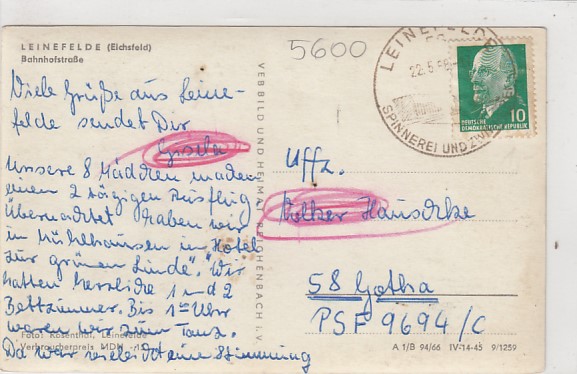 LEINEFELDE (Eichsfeld)
Bahnhofstraße
5600
LEINEFELDE
22.5.
SPINNEREI UND
10
DEUTSCHE
DEMOKRATISCHE REPUBLIK
Viele Grüße aus Leine-
felde sendet Dir
Gisela
Unsere 8 Mädchen machen
einen 2 tägigen Ausflug
Übernachtet haben wir
in Mühlhausen in Hotel
"zur grünen Linde". Wir
hatten 1 und 2
Bettzimmer. Bis 1 Uhr
waren wir zum Tanz.
Da war eine Stimmung
VEB BILD UND HEIMAT REICHENBACH I. V.
Uffz.
Volker Hauschke
58 Gotha
PSF 9694/C
Foto: Rosenthal, Leinefelde
Verbraucherpreis MDN
A 1/B 94/66 IV-14-45 9/1259